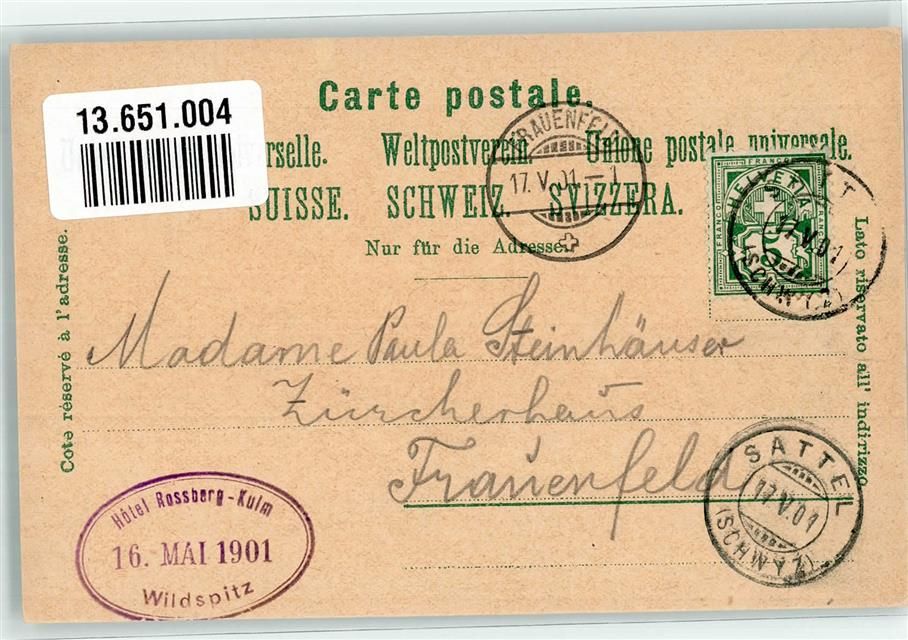 13.651.004
Carte postale.
erselle. Weltpostverein. Unione postale universale.
SUISSE. SCHWEIZ. SVIZZERA.
Nur für die Adresse.
Côté réservé à l'adresse.
Lato riservato all' indirizzo
FRAUENFELD
17. V. 01 — 1
FRANCO
HELVETIA
FRANCO
FRANCO
5
17. V. 01
(SCHWYZ)
Madame Paula Steinhäuser
Zürcherhaus
Frauenfeld
SATTEL
17. V. 01
(SCHWYZ)
Hôtel Rossberg-Kulm
16. MAI 1901
Wildspitz